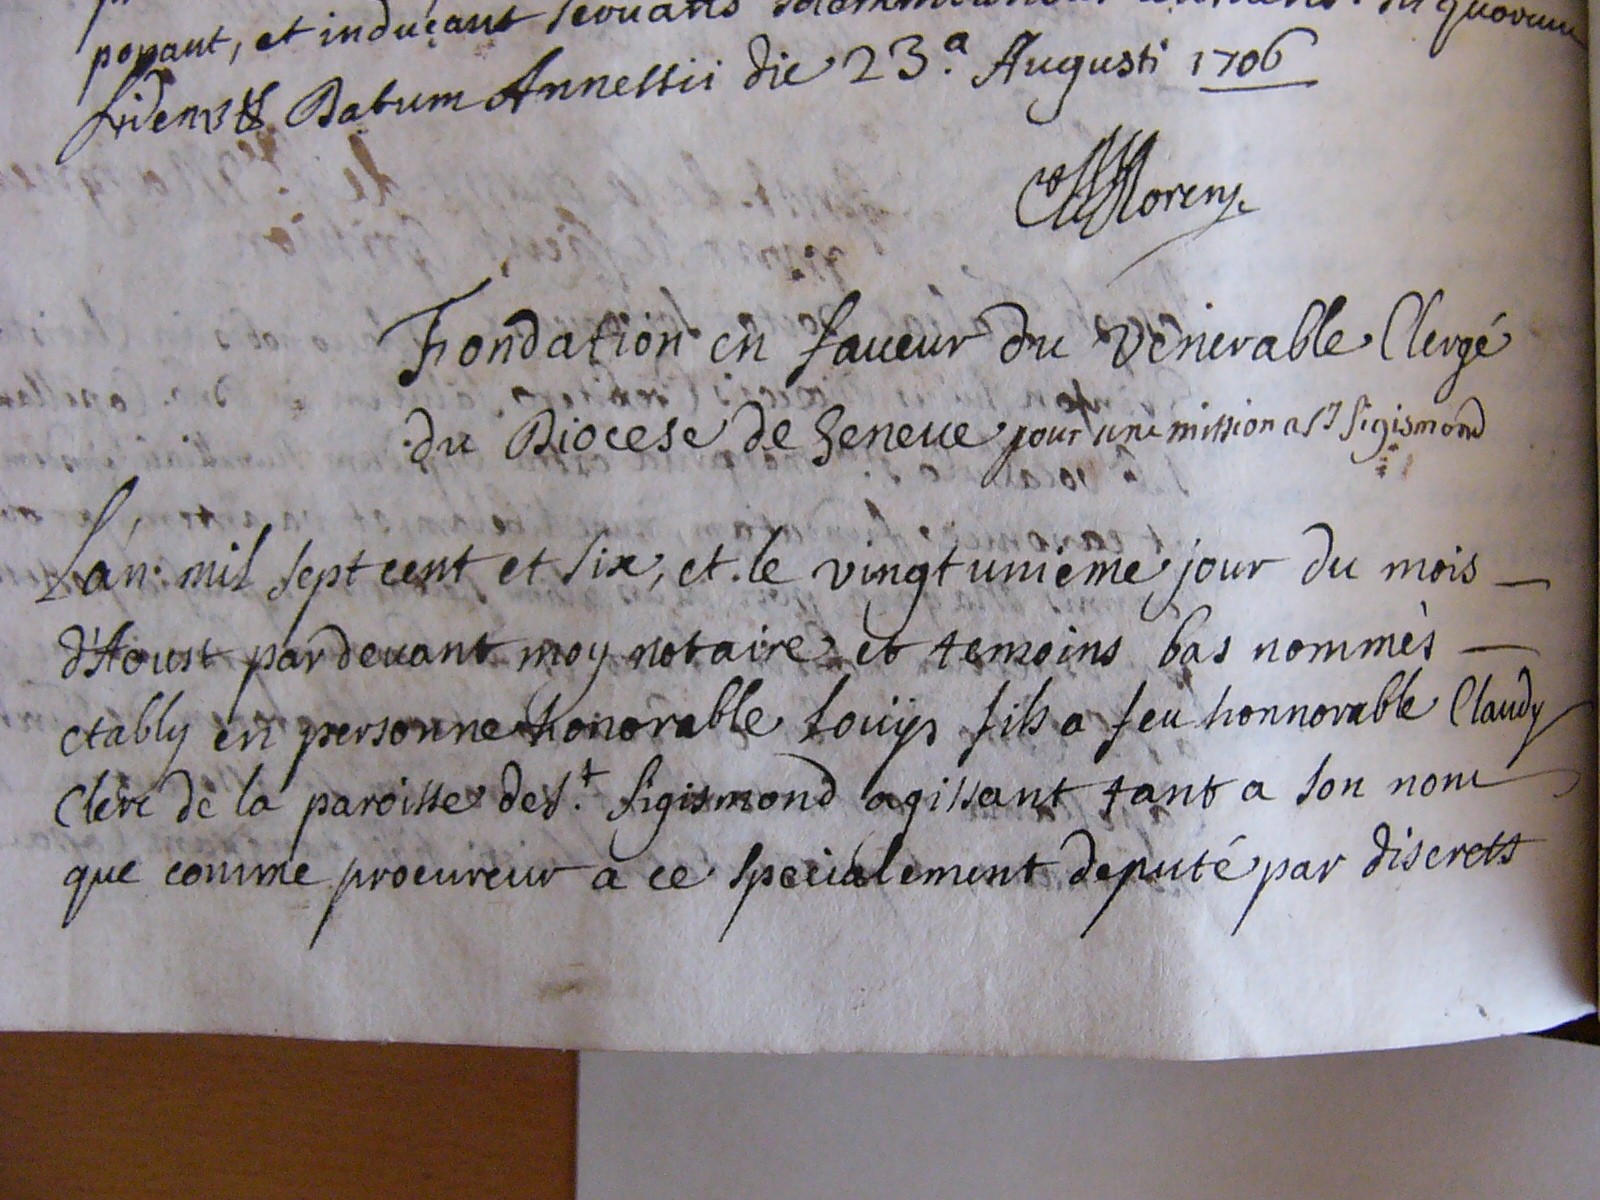 popant, et induçant servatis solemnitatibus In quorum
fidem & Datum Annessii die 23.a Augusti 1706
Morens.
Fondation en faueur du Venerable Clergé
du Diocese de Geneue pour une mission a St Sigismond
L'an mil sept cent et six, et le vingt unieme jour du mois
d'Aoust pardeuant moy notaire et temoins bas nommès
etably en personne honorable Louys fils a feu honnorable Claudy
Clerc de la paroisse de St. Sigismond agissant tant a son nom
que comme procureur a ce specialement deputé par discrets